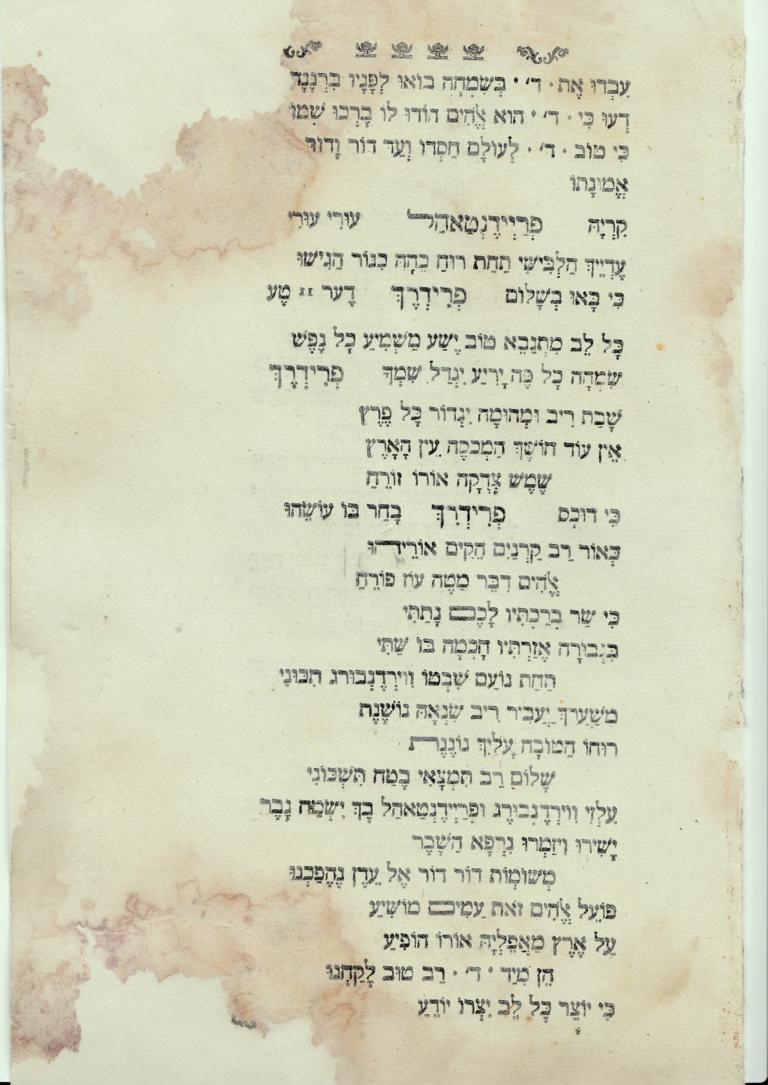 עִבְדוּ אֶת · ד׳ · בְּשִׂמְחָה בּוֹאוּ לְפָנָיו בִּרְנָנָה
דְעוּ כִּי · ד׳ · הוא אֱלֹהִים הוֹדוּ לוֹ בָּרְכוּ שְׁמוֹ
כִּי טוֹב · ד׳ · לְעוֹלָם חַסְדוֹ וְעַד דוֹר וָדוֹר
אֱמוּנָתוֹ
קִרְיָה פְרַיְידֶנְטַאהַל עוּרִי עוּרִי
עֶדְיֵיךְ הַלְבִּישִׁי תַּחַת רוּחַ כֵּהָה כִּנּוֹר הַגִּישׁוּ
כִּי בָּאוּ בְּשָׁלוֹם פְרִידְרֶךְ דֶער ײַ טֶע
כָּל לֵב מִתְנַבֵּא טוֹב יֶשַׁע מַשְׁמִיעַ כָּל נֶפֶשׁ
שִׂמְחָה כָל פֶּה יָרִיעַ יִגְדַל שִׁמְךָ פְרִידְרֶךְ
שָׁכַת רִיב וּמְהוּמָה יִגְדוֹר כָּל פֶּרֶץ
אֵין עוֹד חוֹשֶׁךְ הַמְכַסֶּה עֵין הָאָרֶץ
שֶׁמֶשׁ צְדָקָה אוֹרוֹ זוֹרֵחַ
כִּי דוּכְּס פְרִידְרִךְ בָּחַר בּוֹ עוֹשֵׂהוּ
כְּאוֹר רַב קַרְנַיִם הֵקִים אוֹרֵיהוּ
אֱלֹהִים דִבֶּר מַטֵה עוֹז פּוֹרֵחַ
כִּי שַׂר בֵּרַכְתִּיו לָכֶם נָתַתִּי
בִּגְבוּרָה אֲזַרְתִּיו חָכְמָה בּוֹ שַׁתִּי
תַּחַת נוֹעַם שִׁבְטוֹ וִוירְדֶנְבּוּרג תִּכּוֹנִי
מִשְׁעָרֵךְ יַעֲבִיר רִיב שִׂנְאָה נוֹשֶׁנֶת
רוּחוֹ הַטּוֹבָה עָלַיִךְ גּוֹנֶנֶת
שָׁלוֹם רַב תִּמְצְאִי בֶּטַח תִּשְׁכּוֹנִי
עִלְזִי וִוירְדֶנְבּוּרג וּפְרַיְידֶנְטַאהַל בָּךְ יִשְׂמַח גֶבֶר
יָשִׁירוּ וִיזַמְרוּ נִרְפָּא הַשֶׁבֶר
מְשׁוֹמְמוֹת דוֹר דוֹר אֶל עֵדֶן נֶהְפַּכְנוּ
פּוֹעֵל אֱלֹהִים זֹאת עַמִּיכֶם מוֹשִׁיעַ
עַל אֶרֶץ מַאְפֵּלְיָה אוֹרוֹ הוֹפִיעַ
הֵן מִיַד · ד׳ · רַב טוּב לָקַחְנוּ
כִּי יוֹצֵר כָּל לֵב יִצְרוֹ יוֹדֵעַ